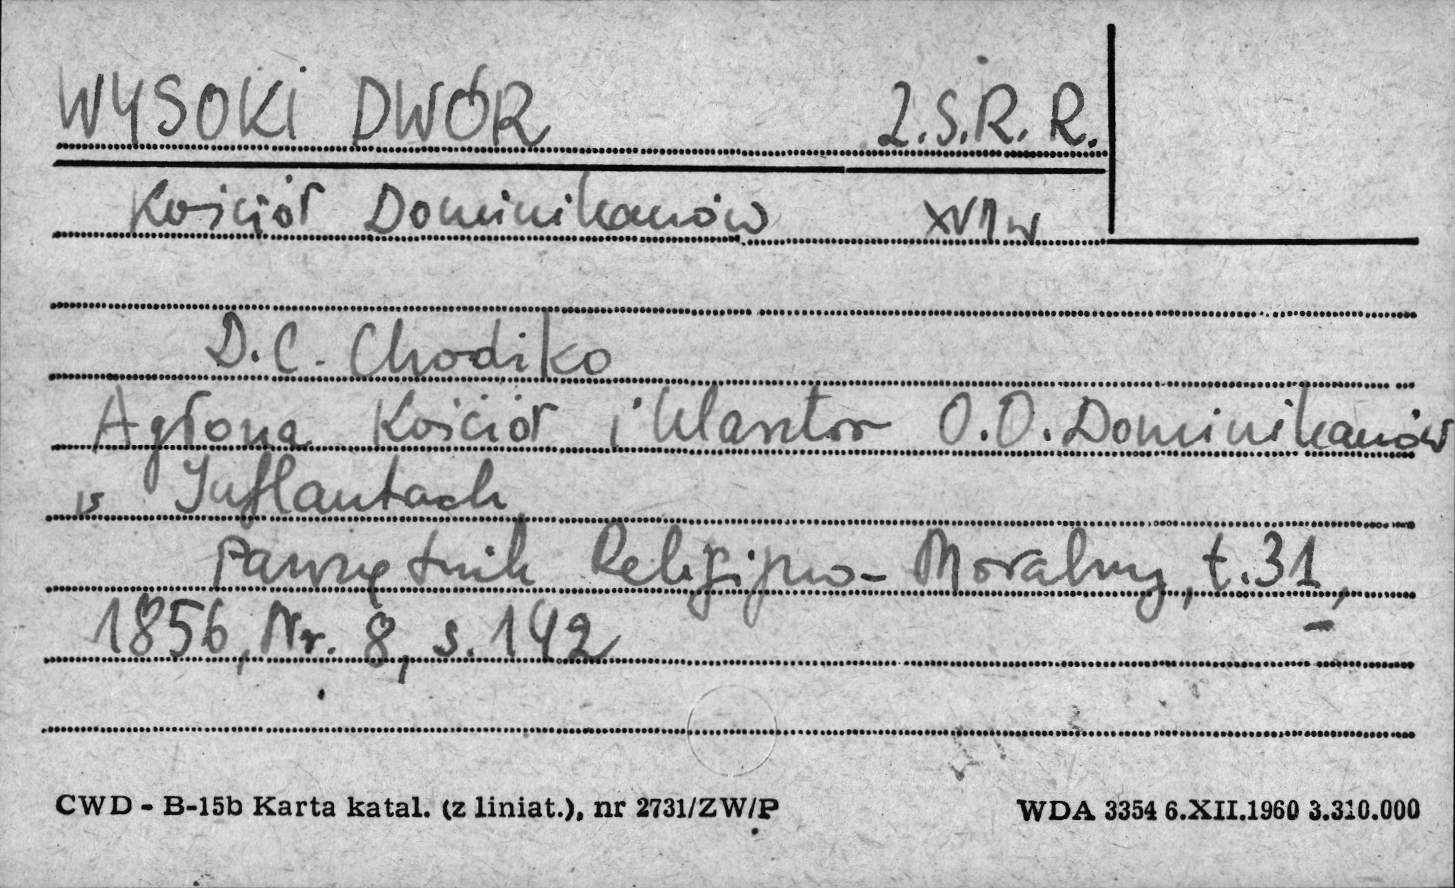 WYSOKI DWÓR Z.S.R.R.
Kościół Dominikanów XVI w
D.C. Chodźko
Agłona Kościół i klasztor O.O. Dominikanów
w Inflantach
Pamiętnik Religijno-Moralny, t.31,
1856, Nr. 8, s. 142
CWD - B-15b Karta katal. (z liniat.), nr 2731/ZW/P WDA 3354 6.XII.1960 3.310.000